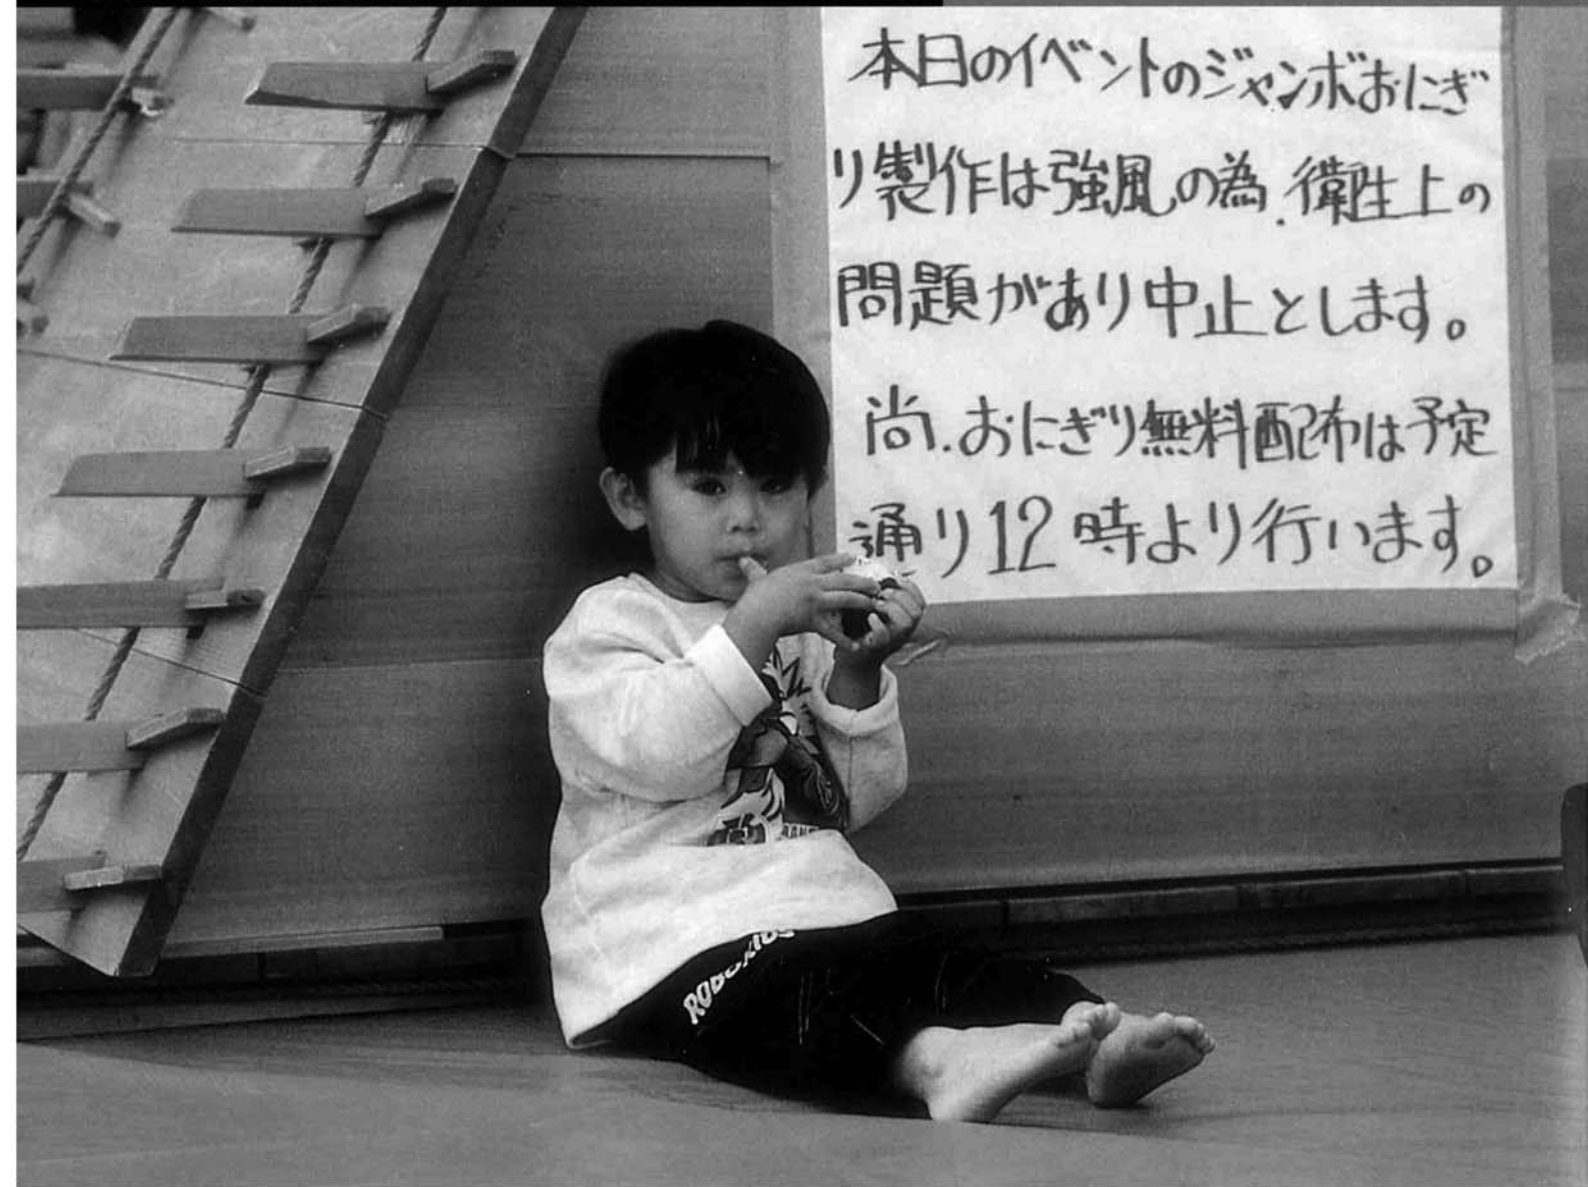 本日のイベントのジャンボおにぎ
り製作は強風の為.衛生上の
問題があり中止とします。
尚.おにぎり無料配布は予定
通り12時より行います。
ROBO KIDS